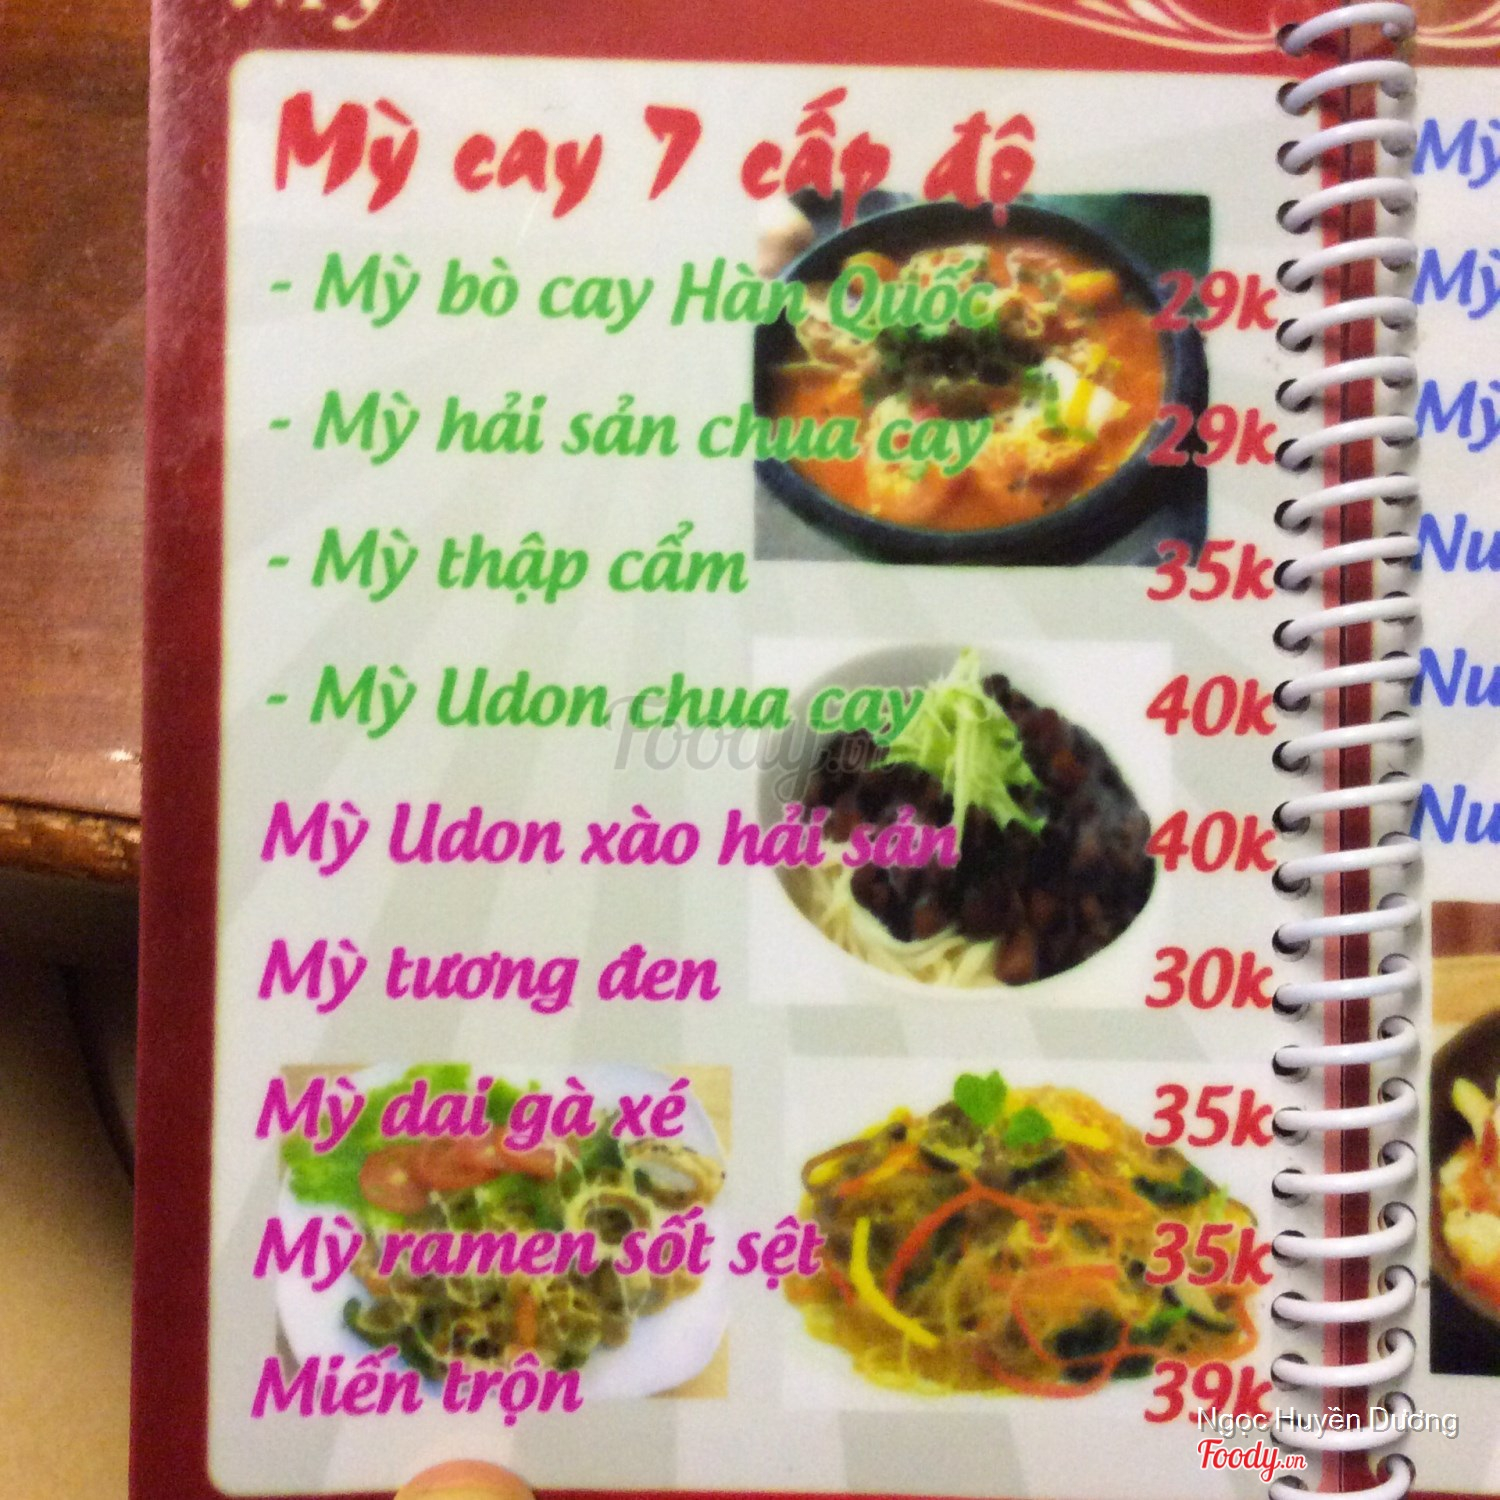 Mỳ cay 7 cấp độ
- Mỳ bò cay Hàn Quốc 29k
- Mỳ hải sản chua cay 29k
- Mỳ thập cẩm 35k
- Mỳ Udon chua cay 40k
Foody.vn
Mỳ Udon xào hải sản 40k
Mỳ tương đen 30k
Mỳ dai gà xé 35k
Mỳ ramen sốt sệt 35k
Miến trộn 39k
Mỳ
Mỳ
Mỳ
Ngọc Huyền Dương
Foody.vn